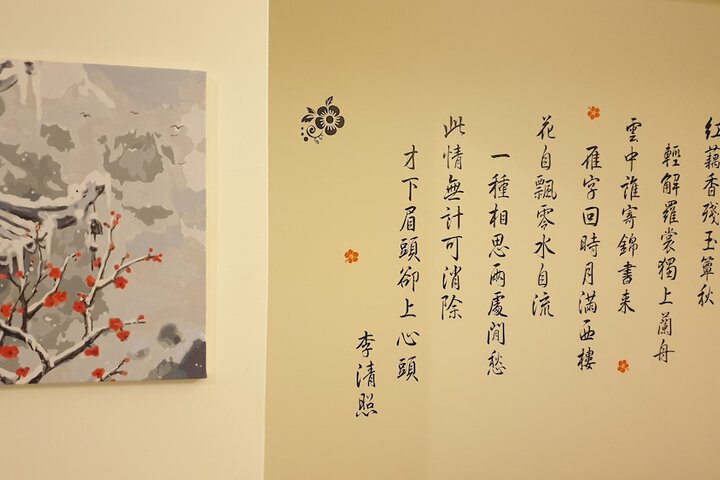 紅藕香殘玉簟秋
輕解羅裳獨上蘭舟
雲中誰寄錦書来
雁字回時月滿西樓
花自飄零水自流
一種相思兩處閒愁
此情無計可消除
才下眉頭卻上心頭
李清照